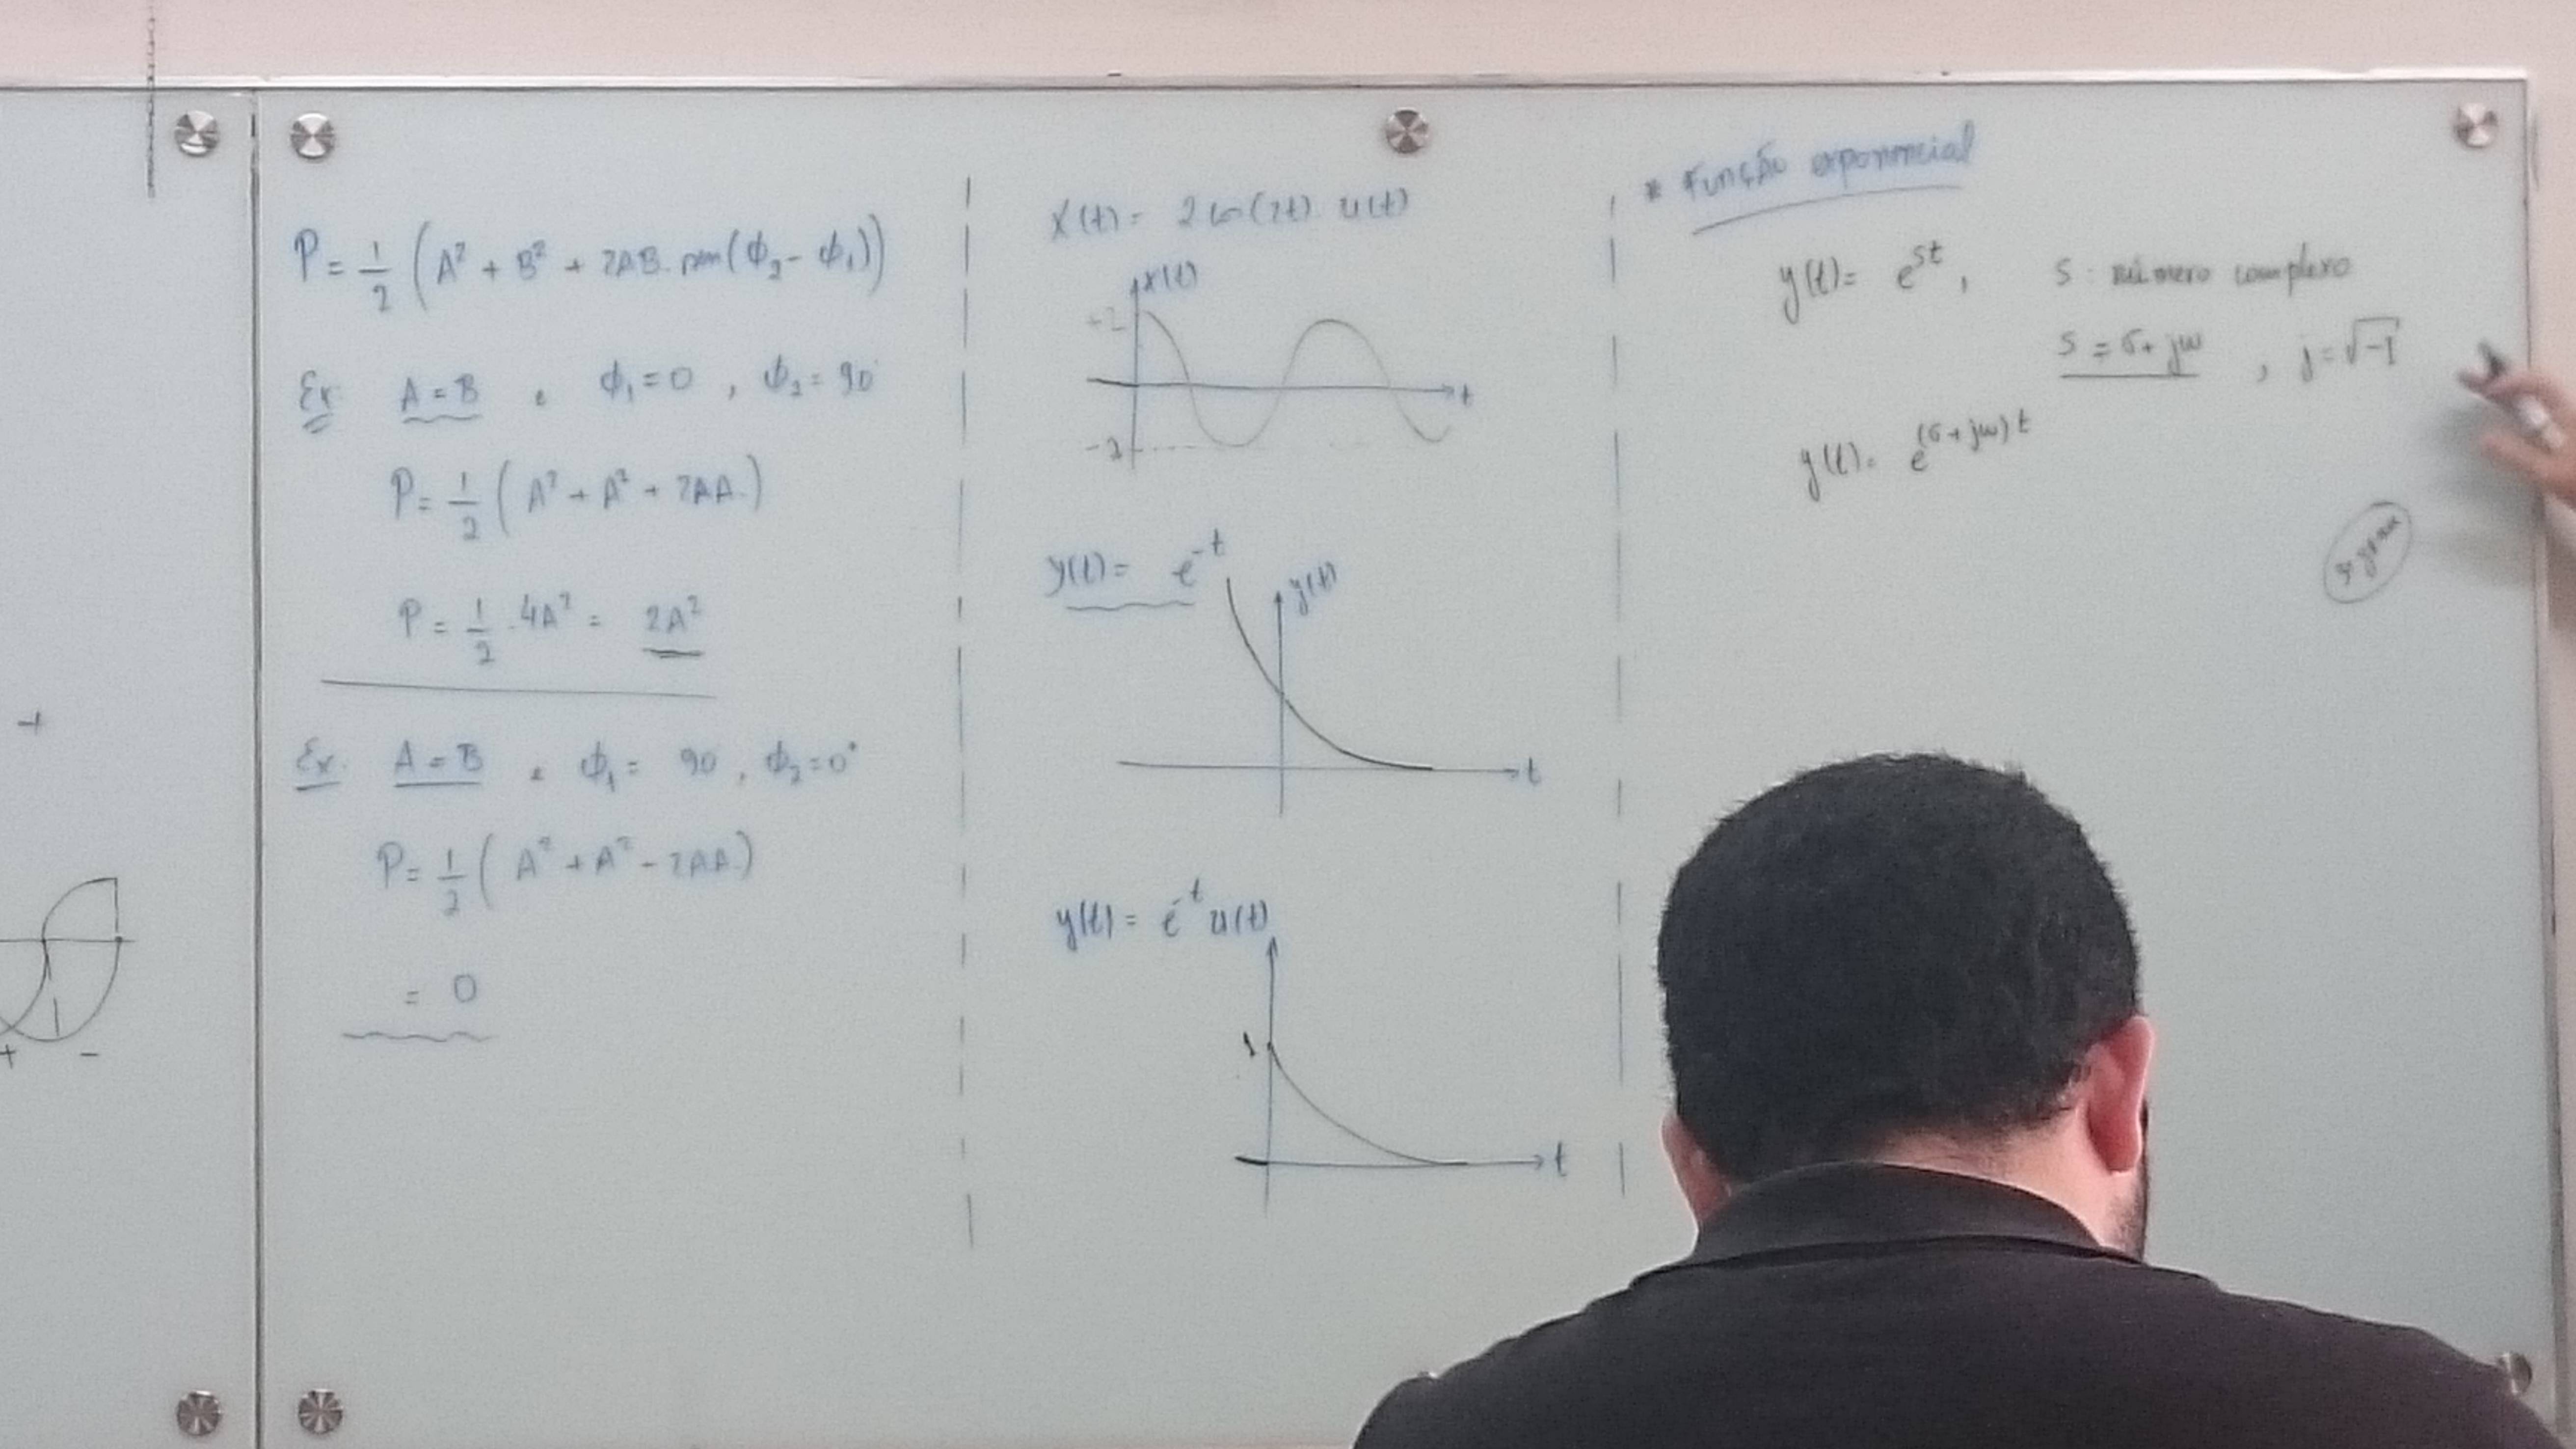 P = 1/2 (A² + B² + 2AB. sen(ϕ₂ - ϕ₁))
Ex A = B e ϕ₁ = 0 , ϕ₂ = 90°
P = 1/2 (A² + A² + 2AA.)
P = 1/2 . 4A² = 2A²
Ex. A = B e ϕ₁ = 90 , ϕ₂ = 0°
P = 1/2 (A² + A² - 2AA.)
= 0
+
+ -
x(t) = 2 cos(2t) u(t)
x(t)
+2
t
-2
y(t) = e^-t
y(t)
t
y(t) = e^-t u(t)
1
t
* Função exponencial
y(t) = e^st , s : número complexo
s = σ + jω , j = √-1
y(t) = e^(σ + jω)t